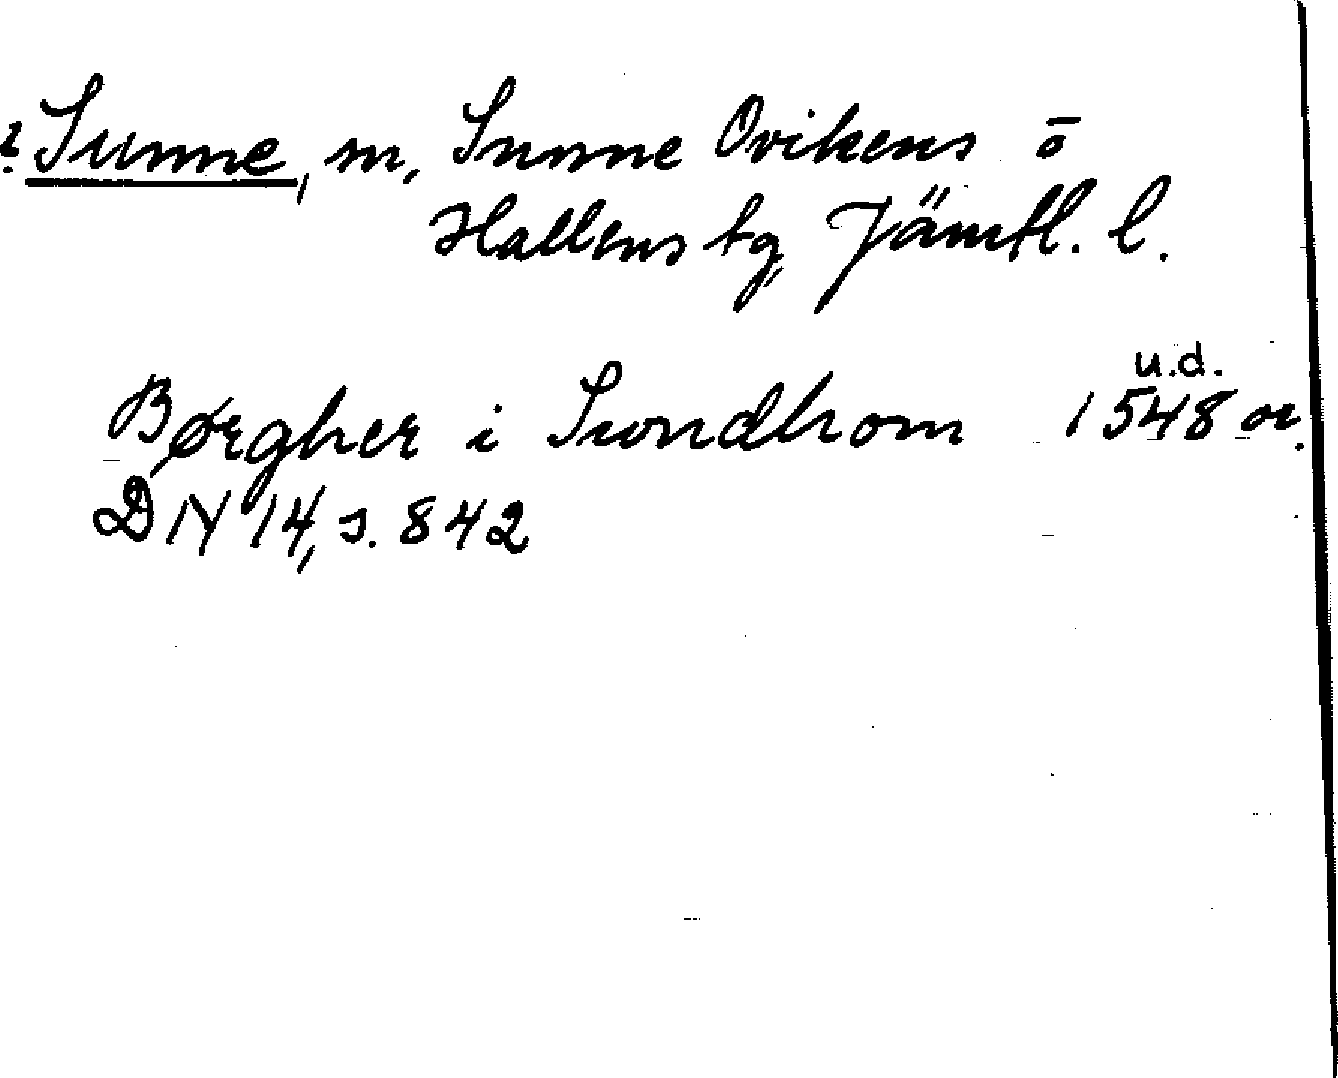 ? Sunne, m, Sunne Ovikens o
Hallens tg, Jämtl. l.
u.d.
Børgher i Swndhom 1548 or.
DN 14, s. 842